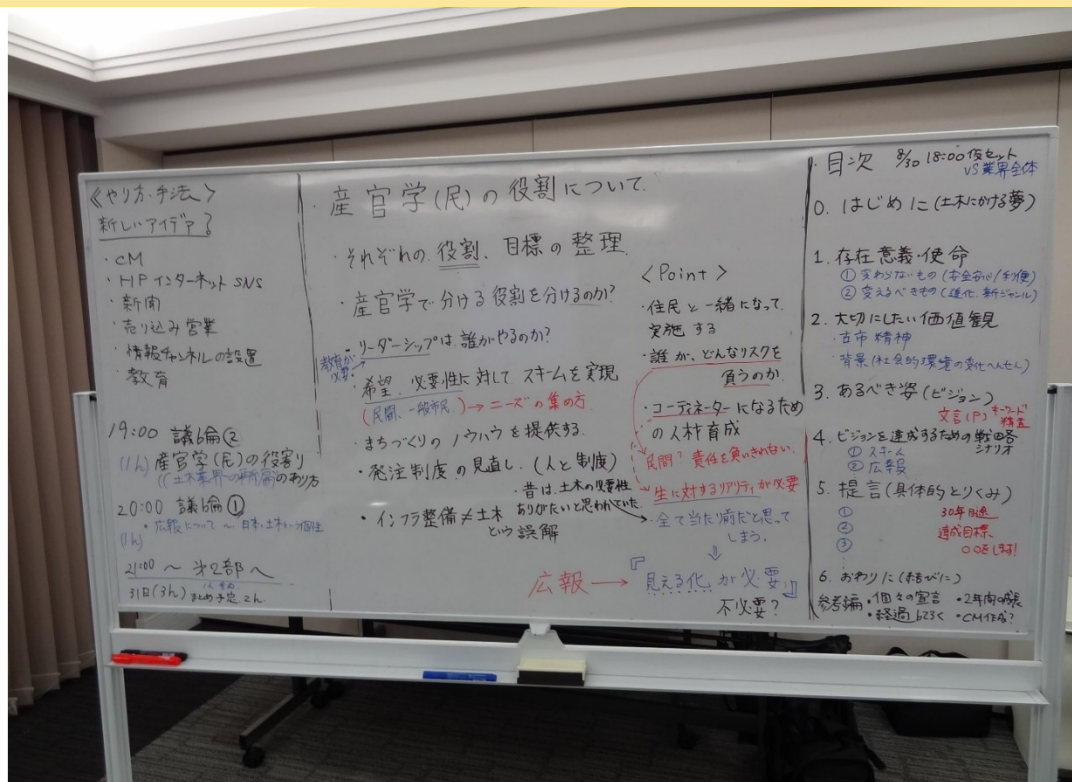 《やり方・手法》
新しいアイデア?
・CM
・HP インターネット SNS
・新聞
・売り込み営業
・情報チャンネルの設置
・教育
19:00 議論②
(1h) 産官学(民)の役割り
20:00 議論①
・広報について 〜
(1h)
21:00 〜 第2部へ
31日(3h) まとめ予定
・産官学(民)の役割について
・それぞれの役割、目標の整理
・産官学で分ける役割を分けるのか?
・リーダーシップは誰がやるのか?
教育が必要
・希望、必要性に対してスキームを実現
(民間、一般市民)→ニーズの集め方
・まちづくりのノウハウを提供する
・発注制度の見直し (人と制度)
・インフラ整備≠土木
という誤解
<Point>
・住民と一緒になって
実施する
・誰が、どんなリスクを
負うのか
・コーディネーターになるため
の人材育成
民間?責任を負いきれない
・生に対するリアリティが必要
・昔は、土木の必要性
ありがたいと思われていた
・全て当り前だと思って
しまう。
広報→『見える化が必要』
不必要?
・目次 8/30 18:00 仮セット
VS 業界全体
0. はじめに(土木にかける夢)
1. 存在意義・使命
① 変わらないもの (安全安心/利便)
② 変えるべきもの (進化、新ジャンル)
2. 大切にしたい価値観
・古市精神
背景(社会的環境の変化へんせん)
3. あるべき姿(ビジョン)
文言(P) キーワード精査
4. ビジョンを達成するための戦略シナリオ
① スキーム
② 広報
5. 提言(具体的とりくみ)
① 30年目途
② 達成目標、
③ 〇〇をします!
6. おわりに(結びに)
参考編 ・個々の宣言
・経過 ・CM作成?